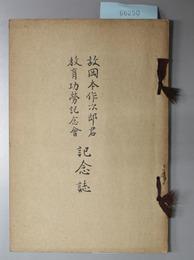 66250
故岡本作次郎君
教育功勞記念會
記念誌